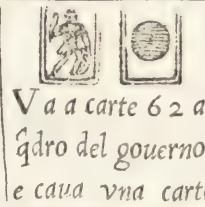 Va a carte 62 a
q̃dro del gouerno
e caua vna carte